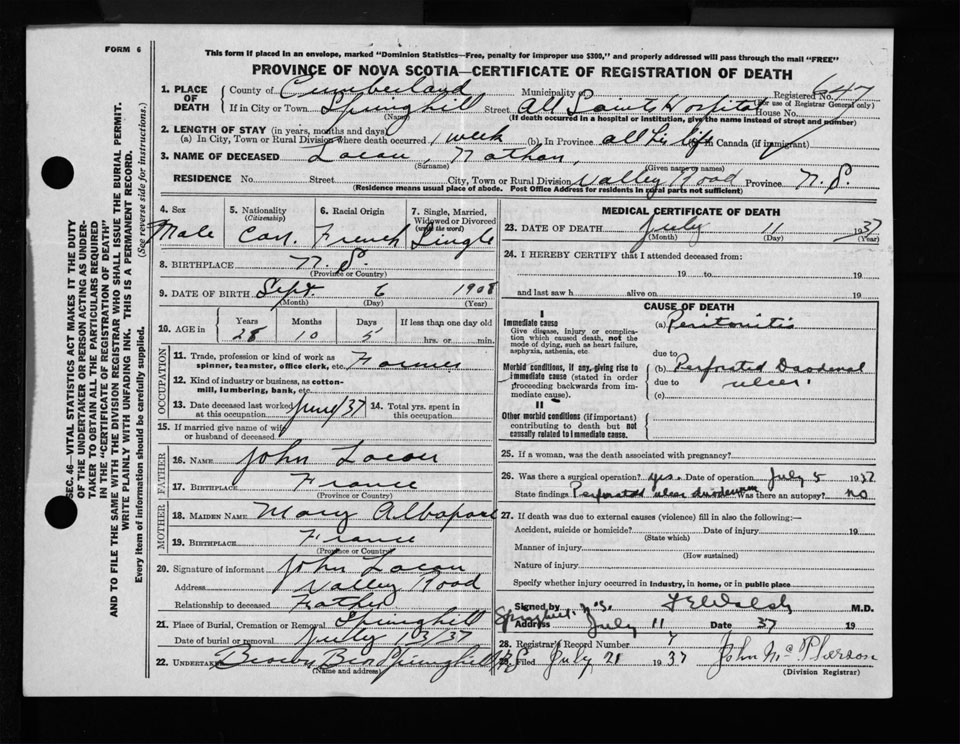 FORM 6
This form if placed in an envelope, marked "Dominion Statistics—Free, penalty for improper use $300," and properly addressed will pass through the mail "FREE"
PROVINCE OF NOVA SCOTIA—CERTIFICATE OF REGISTRATION OF DEATH
SEC. 46—VITAL STATISTICS ACT MAKES IT THE DUTY
OF THE UNDERTAKER OR PERSON ACTING AS UNDER-
TAKER TO OBTAIN ALL THE PARTICULARS REQUIRED
IN THE "CERTIFICATE OF REGISTRATION OF DEATH"
AND TO FILE THE SAME WITH THE DIVISION REGISTRAR WHO SHALL ISSUE THE BURIAL PERMIT.
WRITE PLAINLY WITH UNFADING INK. THIS IS A PERMANENT RECORD.
Every item of information should be carefully supplied. (See reverse side for instructions.)
1. PLACE OF DEATH County of Cumberland Municipality of Registered No. 647
(For use of Registrar General only)
If in City or Town Springhill Street All Saints Hospital House No.
(Name) (If death occurred in a hospital or institution, give the name instead of street and number)
2. LENGTH OF STAY (in years, months and days)
(a) In City, Town or Rural Division where death occurred 1 week (b) In Province all his life Canada (if immigrant)
3. NAME OF DECEASED Nathan
(Surname) (Given name or names)
RESIDENCE No. Street City, Town or Rural Division Valley Road Province N.S.
(Residence means usual place of abode. Post Office Address for residents in rural parts not sufficient)
4. Sex Male
5. Nationality (Citizenship) Can.
6. Racial Origin French
7. Single, Married, Widowed or Divorced (write the word) Single
8. BIRTHPLACE N.S.
(Province or Country)
9. DATE OF BIRTH Sept. 6 1908
(Month) (Day) (Year)
10. AGE in Years 28 Months 10 Days 5 If less than one day old hrs. or min.
OCCUPATION
11. Trade, profession or kind of work as spinner, teamster, office clerk, etc. Farmer
12. Kind of industry or business, as cotton-mill, lumbering, bank, etc.
13. Date deceased last worked at this occupation June/37 14. Total yrs. spent in this occupation
15. If married give name of wife or husband of deceased
FATHER
16. NAME John
17. BIRTHPLACE France
(Province or Country)
MOTHER
18. MAIDEN NAME Mary
19. BIRTHPLACE France
(Province or Country)
20. Signature of informant John
Address Valley Road
Relationship to deceased Father
21. Place of Burial, Cremation or Removal Springhill
Date of burial or removal July 13/37
22. UNDERTAKER Brown Bros Springhill N.S.
(Name and address)
MEDICAL CERTIFICATE OF DEATH
23. DATE OF DEATH July 11 1937
(Month) (Day) (Year)
24. I HEREBY CERTIFY that I attended deceased from:
19 to 19
and last saw h alive on 19
CAUSE OF DEATH
I
Immediate cause
Give disease, injury or complication which caused death, not the mode of dying, such as heart failure, asphyxia, asthenia, etc
(a) Peritonitis
due to
Morbid conditions, if any, giving rise to immediate cause (stated in order proceeding backwards from immediate cause).
(b) Perforated Duodenal
due to ulcer
(c)
II
Other morbid conditions (if important) contributing to death but not causally related to immediate cause.
25. If a woman, was the death associated with pregnancy?
26. Was there a surgical operation? yes. Date of operation July 5 1937
State findings Perforated ulcer duodenum Was there an autopsy? no
27. If death was due to external causes (violence) fill in also the following:—
Accident, suicide or homicide? Date of injury 19
(State which)
Manner of injury
(How sustained)
Nature of injury
Specify whether injury occurred in industry, in home, or in public place
Signed by Walsh M.D.
Address Springhill N.S. July 11 Date 37 19
28. Registrar's Record Number 7
29. Filed July 21 1937 John McPherson
(Division Registrar)